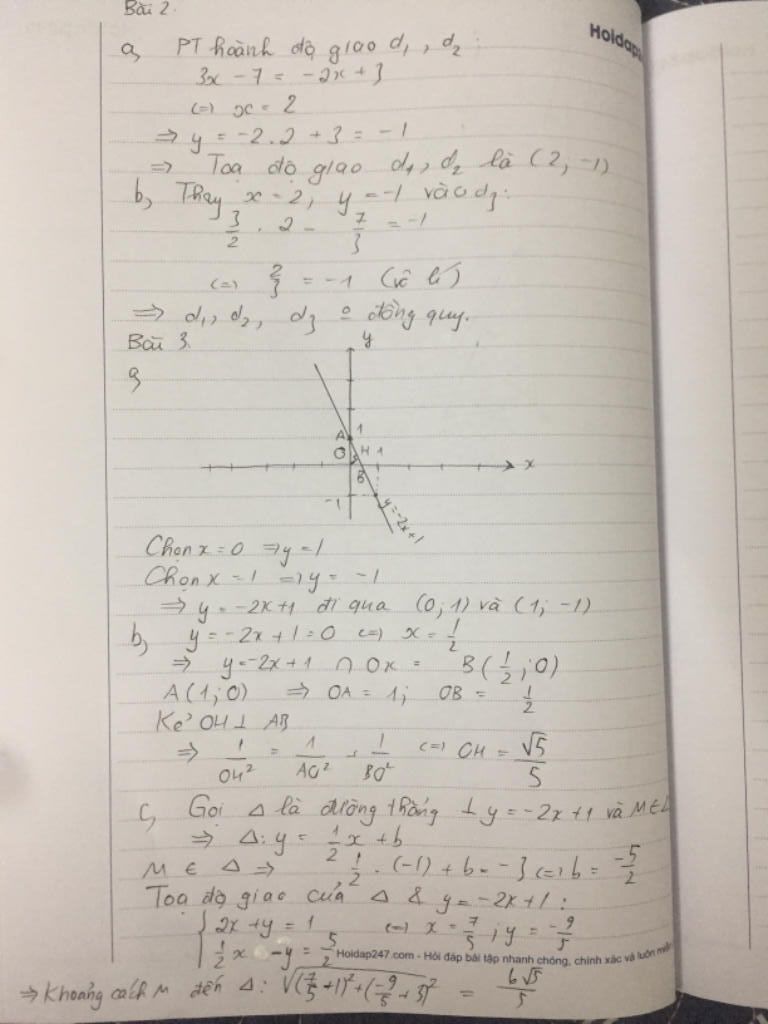 Bài 2.
Hoidap
a, PT hoành độ giao d₁, d₂ :
3x - 7 = -2x + 3
(=) x = 2
⇒ y = -2.2 + 3 = -1
⇒ Toạ độ giao d₁, d₂ là (2, -1)
b, Thay x = 2, y = -1 vào d₃:
3/2 . 2 - 7/3 = -1
(=) 2/3 = -1 (vô lí)
⇒ d₁, d₂, d₃ o đồng quy.
Bài 3.
a,
y
A 1
O H 1 x
B
-1
y=-2x+1
Chọn x = 0 ⇒ y = 1
Chọn x = 1 ⇒ y = -1
⇒ y = -2x+1 đi qua (0;1) và (1; -1)
b, y = -2x + 1 = 0 (=) x = 1/2
⇒ y = -2x + 1 ∩ Ox = B(1/2; 0)
A(1; 0) ⇒ OA = 1; OB = 1/2
Kẻ OH ⊥ AB
⇒ 1/OH² = 1/AO² + 1/BO² (=) OH = √5/5
c, Gọi Δ là đường thẳng ⊥ y = -2x + 1 và M ∈ Δ
⇒ Δ: y = 1/2 x + b
M ∈ Δ ⇒ 1/2 . (-1) + b = -3 (=) b = -5/2
Toạ độ giao của Δ & y = -2x + 1 :
{ 2x + y = 1 (=) x = 7/5 ; y = -9/5
1/2 x - y = 5/2
Hoidap247.com - Hỏi đáp bài tập nhanh chóng, chính xác và luôn miễn
⇒ Khoảng cách M đến Δ: √((7/5 + 1)² + (-9/5 + 3)²) = 6√5/5